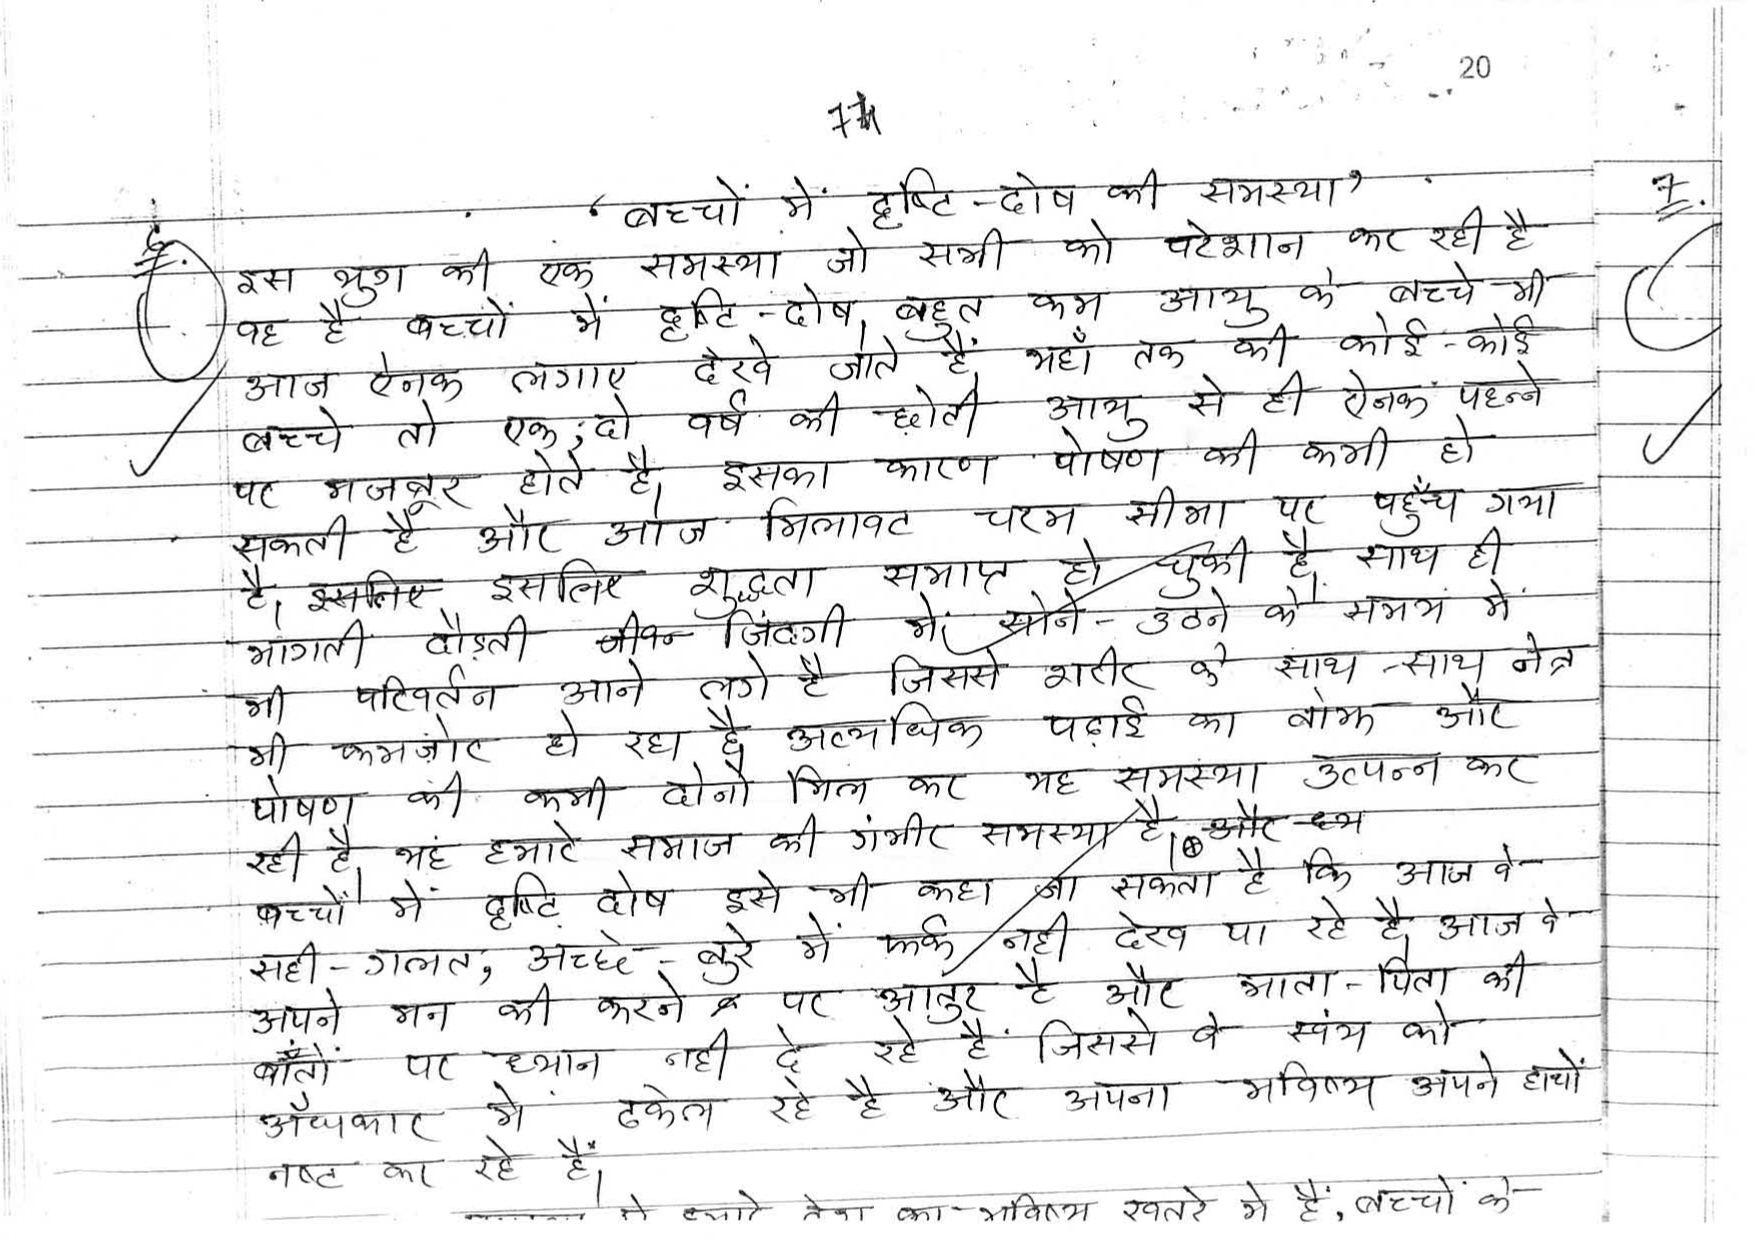 20
7
7.
'बच्चों में दृष्टि-दोष की समस्या'
इस युग की एक समस्या जो सभी को परेशान कर रही है
वह है बच्चों में दृष्टि-दोष। बहुत कम आयु के बच्चे भी
आज ऐनक लगाए देखे जाते हैं, यहाँ तक की कोई-कोई
बच्चे तो एक, दो वर्ष की छोटी आयु से ही ऐनक पहन्ने
पर मजबूर होते है। इसका कारण पोषण की कमी हो
सकती है और आज मिलावट चरम सीमा पर पहुँच गया
है। इसलिए इसलिए शुद्धता समाप्त हो चुकी है, साथ ही
भागती दौड़ती जीवन जिंदगी में सोने-उठने के समय में
भी परिवर्तन आने लगे है जिससे शरीर के साथ-साथ नेत्र
भी कमज़ोर हो रहा है। अत्यधिक पढ़ाई का बोझ और
पोषण की कमी दोनों मिल कर यह समस्या उत्पन्न कर
रही है, यह हमारे समाज की गंभीर समस्या है। और
बच्चों में दृष्टि दोष इसे भी कहा जा सकता है कि आज वे
सही-गलत, अच्छे-बुरे में फर्क नही देख पा रहे है, आज वे
अपने मन की करने पर आतुर है और माता-पिता की
बाँतों पर ध्यान नही दे रहे हैं जिससे वे स्वंय को
अँधकार में ढकेल रहे है और अपना भविष्य अपने हाथों
नष्ट कर रहे हैं।
का भविष्य खतरे मे हैं, बच्चों को